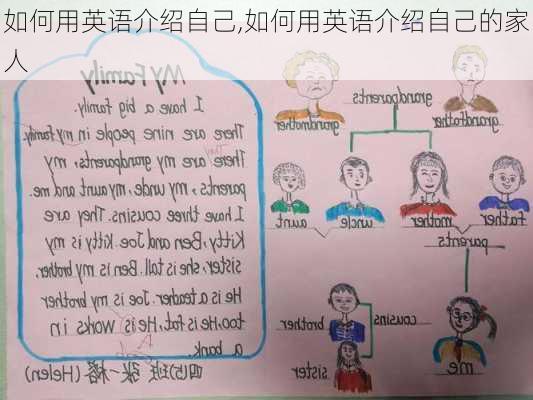 如何用英语介绍自己,如何用英语介绍自己的家
人
My Family
I have a big family.
There are nine people in my family.
They
There are my grandparents, my
parents, my uncle, my aunt, me and
I have three cousins. They are
Kitty, Ben and Joe. Kitty is my
sister, she is tall. Ben is my brother.
He is a teader. Joe is my brother
too, He is fat, He is works in
a bank.
四(5)班 张一榕 (Helen)
grandparents
grandmother
grandfather
aunt
uncle
mother
father
parents
brother
cousins
sister
me